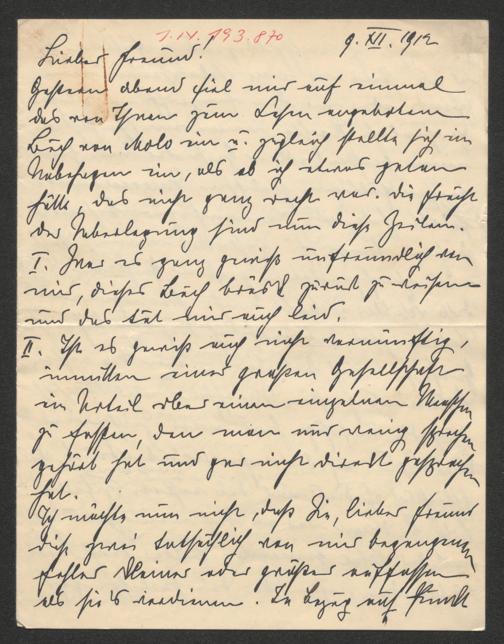 I.N. 193.870
9. XII. 1912
Lieber Freund!
Gestern abend fiel mir auf einmal
das von Ihnen zum Lesen angebotene
Buch von Molo ein u. zugleich stellte sich ein
Unbehagen ein, als ob ich etwas getan
hätte, das nicht ganz recht war. Die Frucht
der Ueberlegung sind nun diese Zeilen.
I. War es ganz gewiß unfreundlich von
mir, dieses Buch brüsk zurück zu weisen
und das tut mir auch leid.
II. Ist es gewiß auch nicht vernünftig,
inmitten einer großen Gesellschaft
ein Urteil über einen einzelnen Menschen
zu fassen, den man nur wenig sprechen
gehört hat und gar nicht direkt gesprochen
hat.
Ich möchte nun nicht, daß Sie, lieber Freund
diese zwei tatsächlich von mir begangenen
Fehler kleiner oder größer auffassen
als sie's verdienen. In Bezug auf Punkt